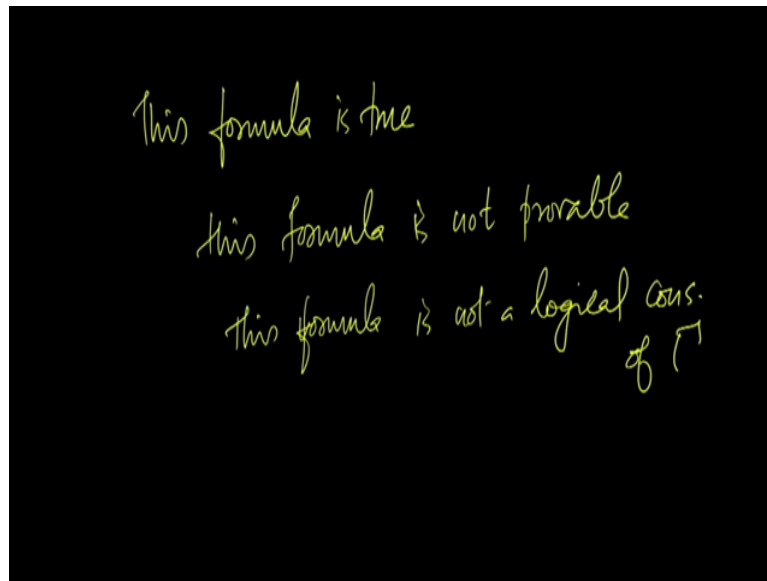 This formula is true
this formula is not provable
this formula is not a logical cons.
of Γ